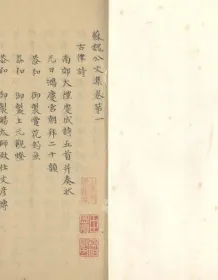 蘇魏公文集卷第一
古律詩
南郊大禮慶成詩五首并奏狀
元日鴻慶宮朝拜二十韻
恭和 御製賞花釣魚
恭和 御製上元觀燈
恭和 御製賜太師致仕文彦博